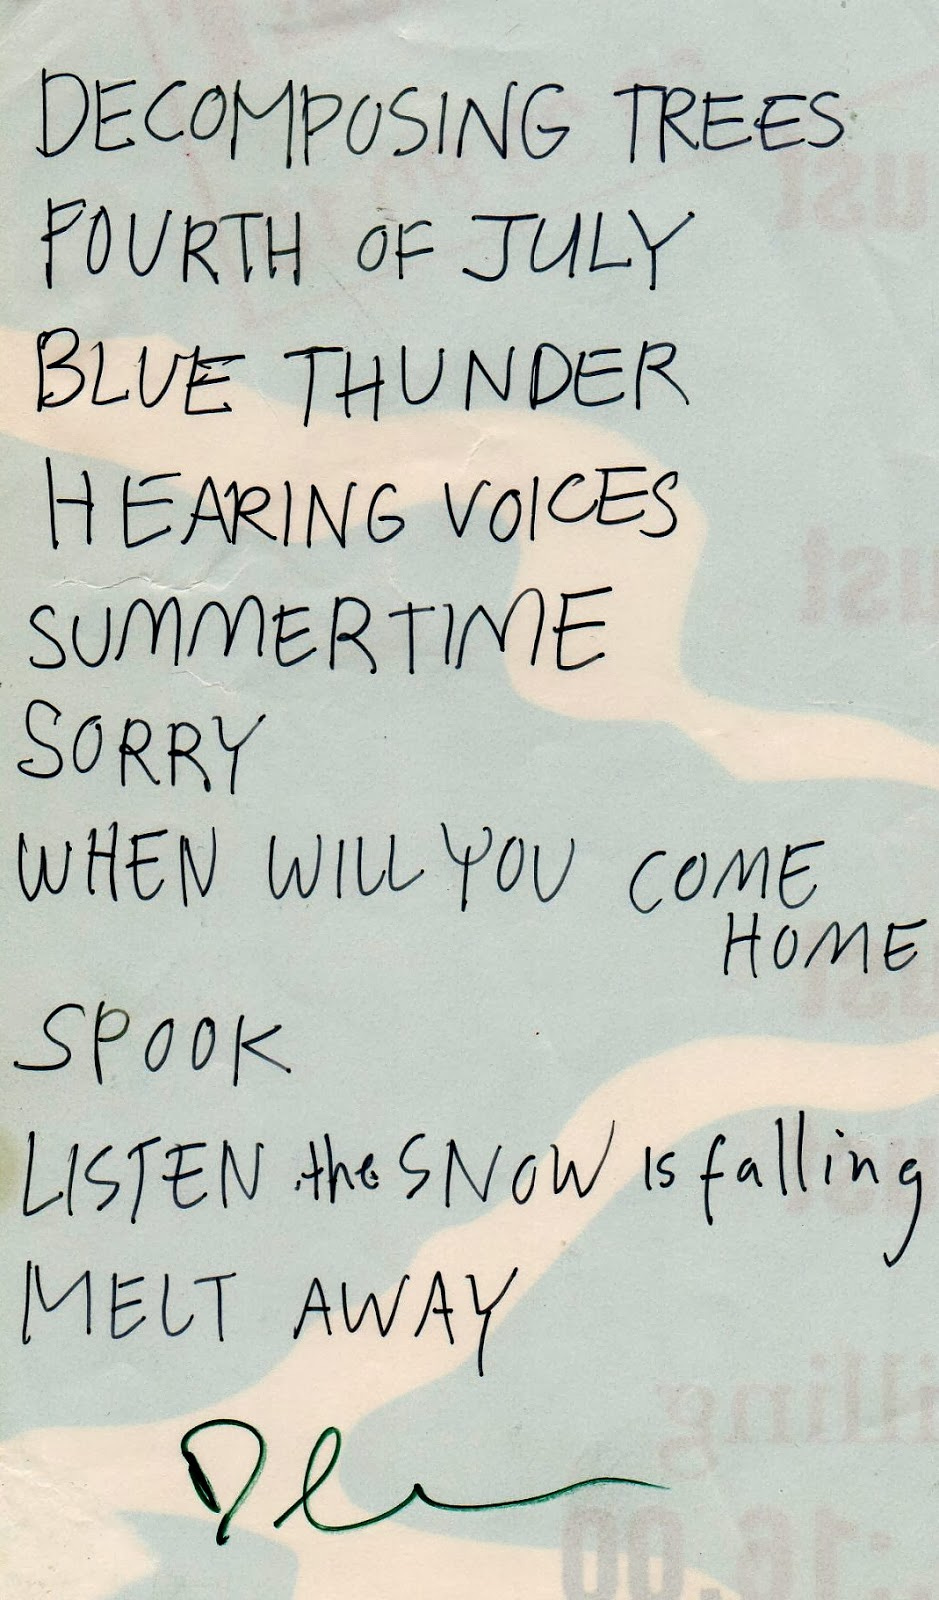 DECOMPOSING TREES
FOURTH OF JULY
BLUE THUNDER
HEARING VOICES
SUMMERTIME
SORRY
WHEN WILL YOU COME
HOME
SPOOK
LISTEN the SNOW IS falling
MELT AWAY